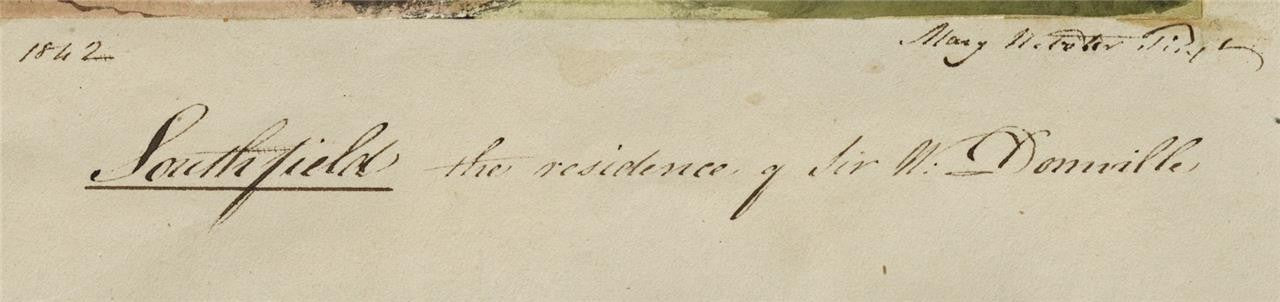 1842 Mary Webster
Southfield the residence of Sir W. Domville